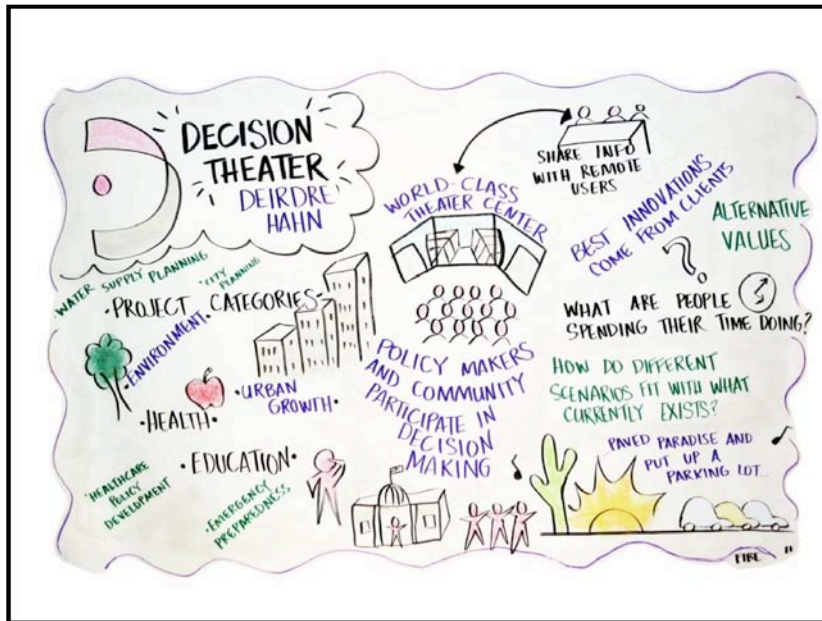 DECISION
THEATER
DEIRDRE
HAHN
WATER SUPPLY PLANNING
"CITY
PLANNING
•PROJECT CATEGORIES•
•ENVIRONMENT•
•HEALTH•
•URBAN
GROWTH•
•EDUCATION•
"HEALTHCARE
POLICY
DEVELOPMENT
•EMERGENCY
PREPAREDNESS
SHARE INFO
WITH REMOTE
USERS
WORLD-CLASS
THEATER CENTER
POLICY MAKERS
AND COMMUNITY
PARTICIPATE IN
DECISION
MAKING
BEST INNOVATIONS
COME FROM CLIENTS
ALTERNATIVE
VALUES
?
WHAT ARE PEOPLE
SPENDING THEIR TIME DOING?
HOW DO DIFFERENT
SCENARIOS FIT WITH WHAT
CURRENTLY EXISTS?
PAVED PARADISE AND
PUT UP A
PARKING LOT...